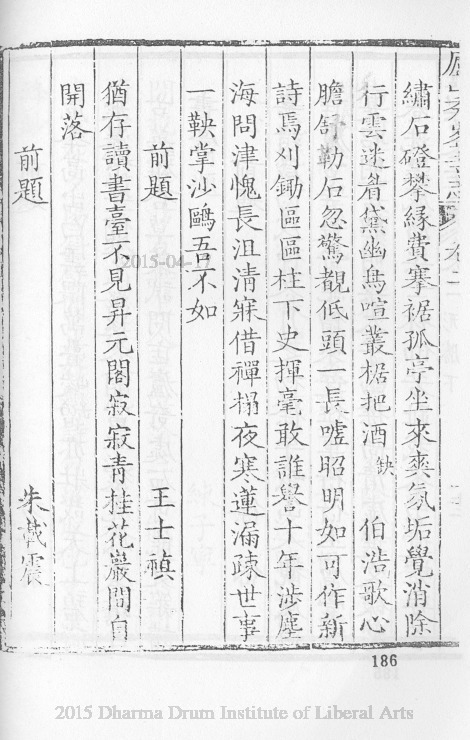 繡石磴攀緣費搴裾孤亭坐來爽氛垢覺消除
行雲迷眷黛幽鳥喧叢椐把酒缺伯浩歌心
膽舒勒石忽驚覩低頭一長噓昭明如可作新
詩焉刈鋤區區柱下史揮毫敢誰譽十年涉塵
海問津愧長沮清寐借禪榻夜寒蓮漏疎世事
一鞅掌沙鷗吾不如
前題 王士禛
猶存讀書臺不見昇元閣寂寂青桂花巖間自
開落
前題 朱載震
186
2015-04-
2015 Dharma Drum Institute of Liberal Arts